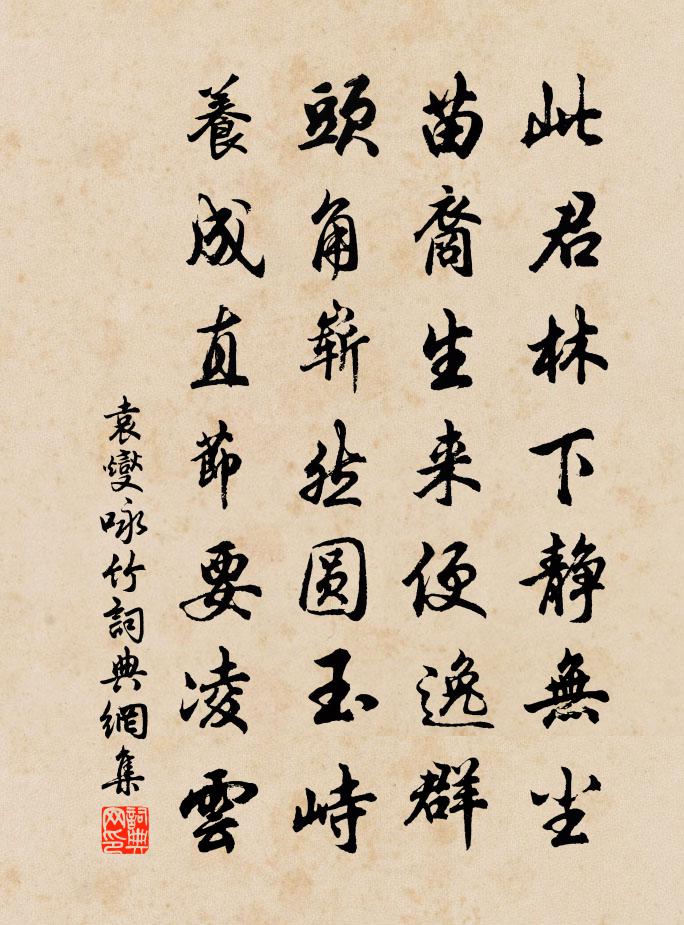 此君林下静無尘
苗裔生来便逸群
頭角嶄然圆玉峙
養成直節要凌雲
袁燮咏竹詞典網集
詞典网印